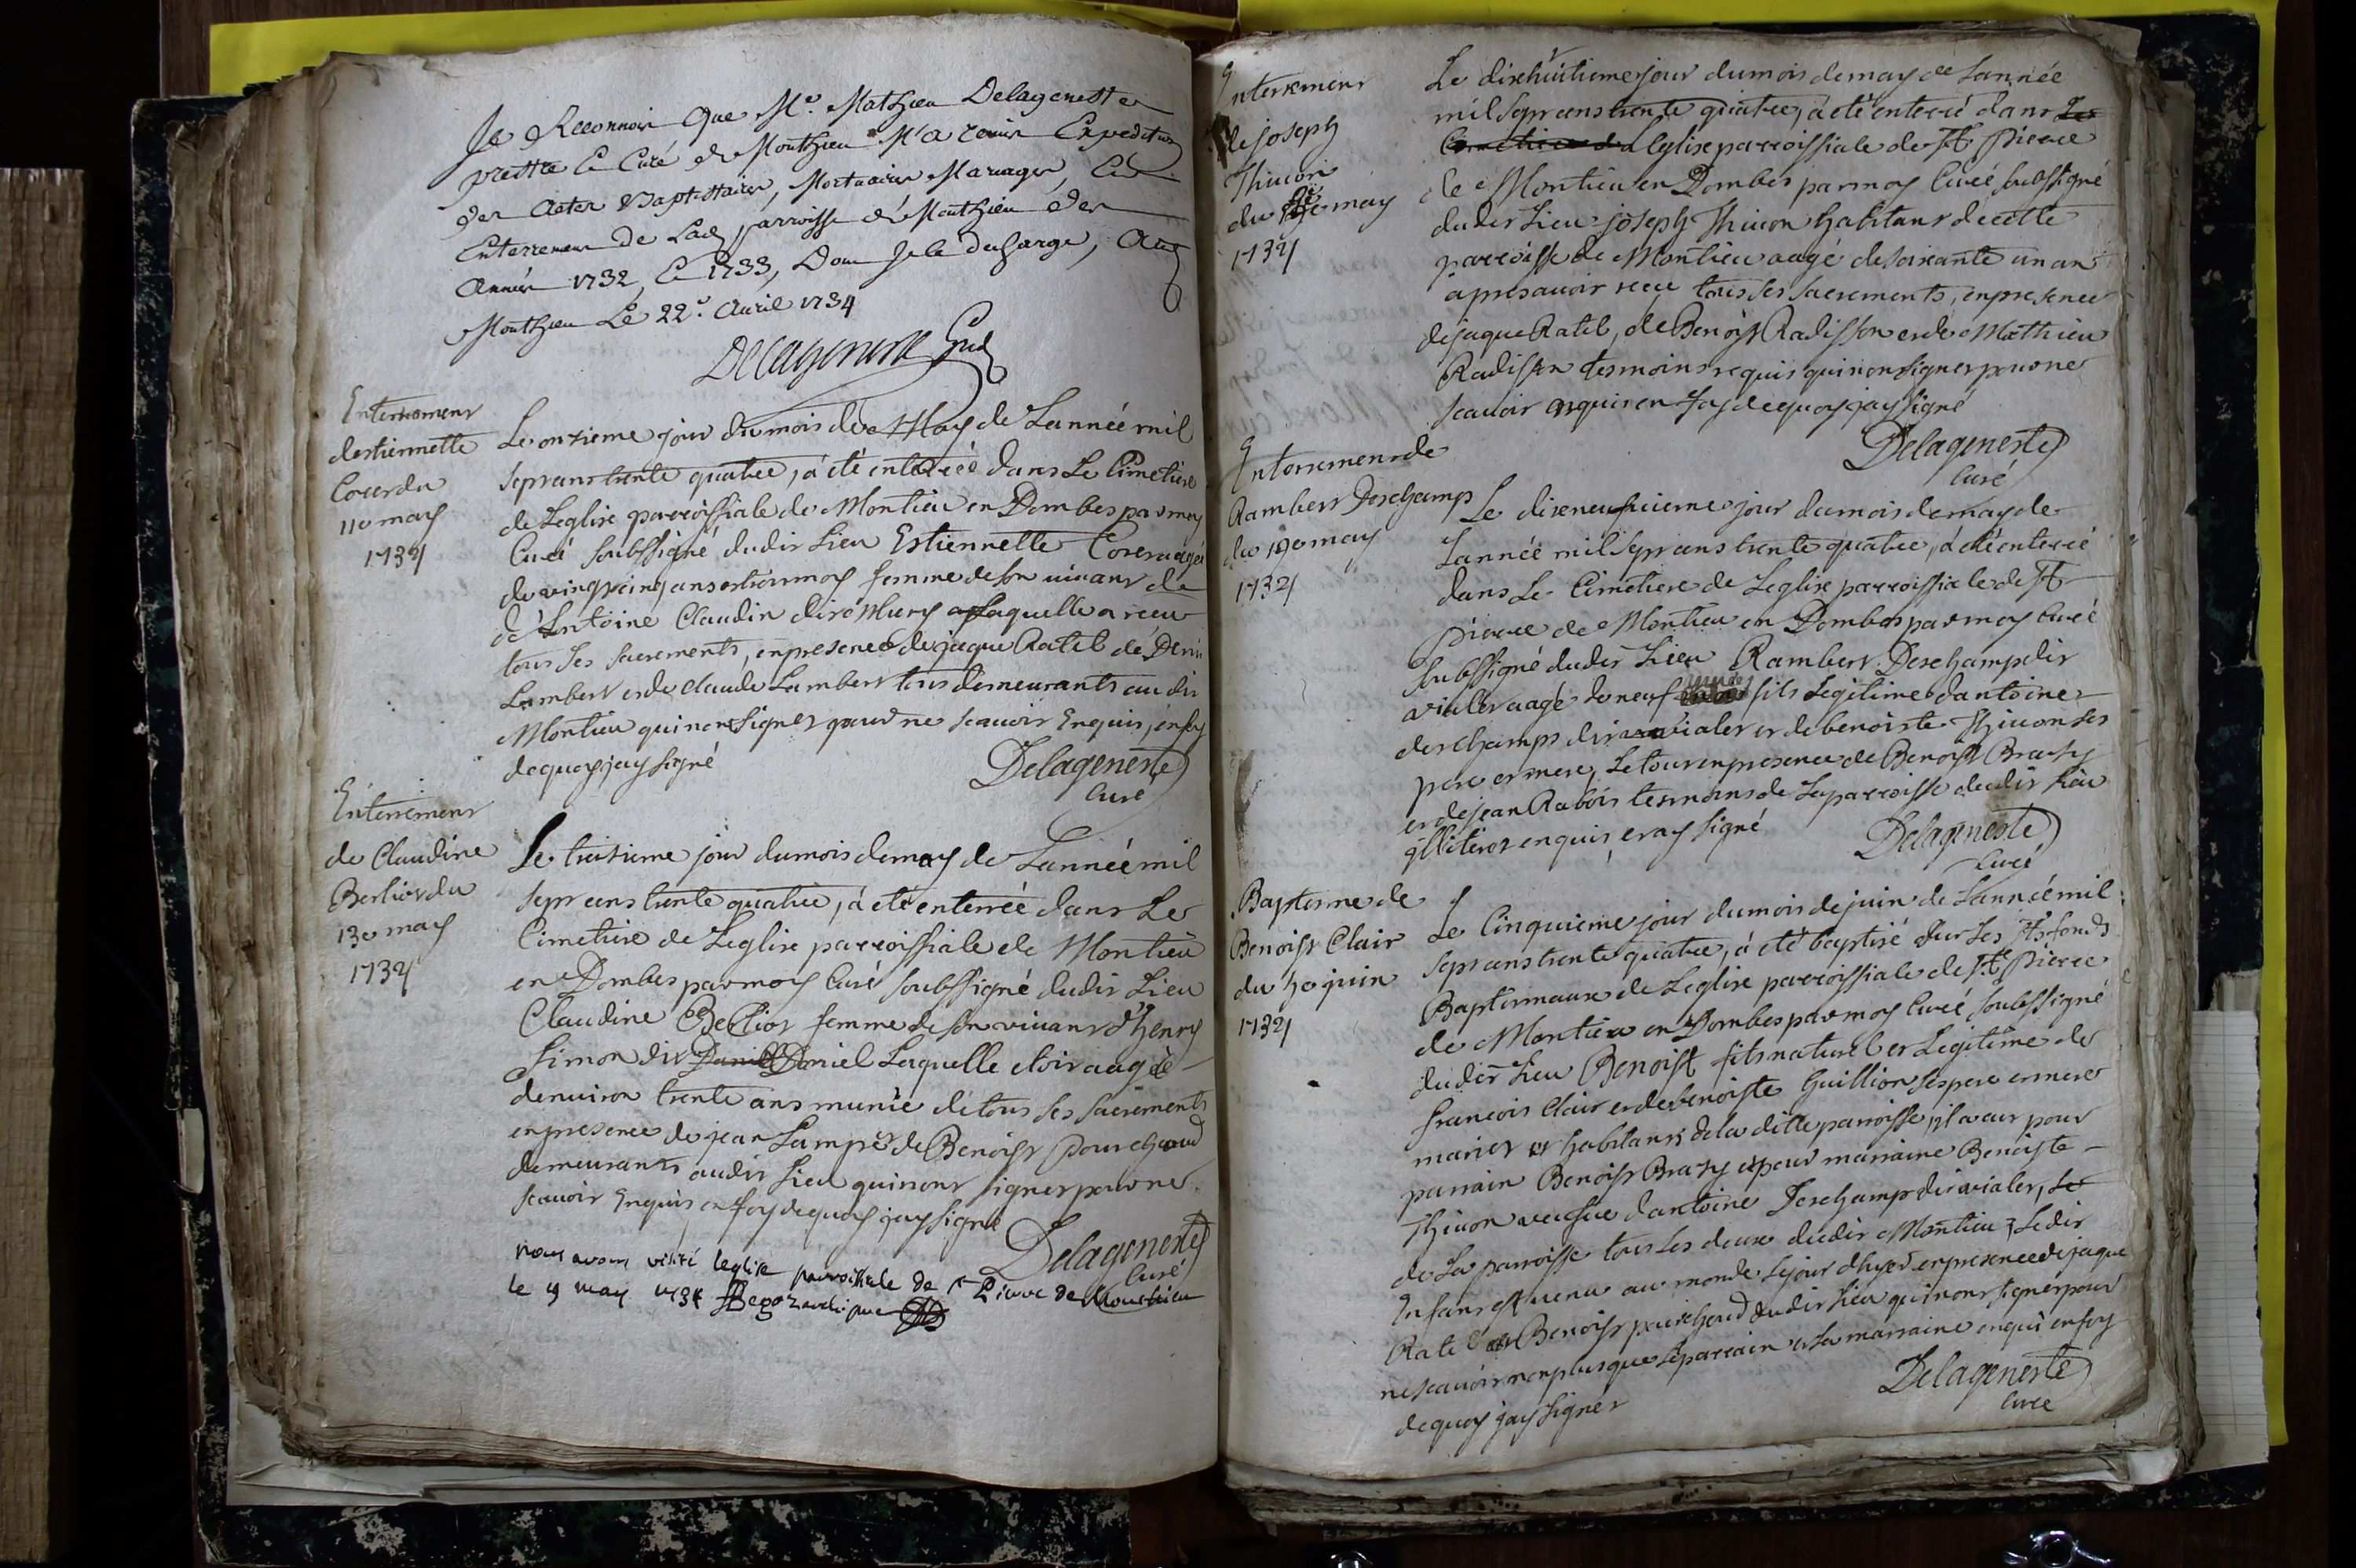 Je Reconnois que Mre Mathieu Delageneste
prettre Et Curé de Monthieu M'a remis Expedition
des Actes Baptistaires, Mortuaires Mariages, Et
Enterremens De Lad parroisse de Monthieu des
Années 1732, Et 1733, Dont Je le descharge, Aud
Monthieu Le 22e Avril 1734
Enterrement
destiennette
Coverdu
11e may
1734
Le onzieme jour du mois de May de Lannée mil
sept cens trente quatre, a été enterrée dans Le Cimetiere
de Leglise parroissiale de Montieu en Dombes par moy
Curé soubssigné dudit Lieu Estiennette aagée
de vingt cinq ans et trois moy femme de son vivant de
de Antoine Claudin dit laquelle a receu
tous ses sacrements, en presence de jaque Ratel de Denis
Lambert et de Claude Lambert tous demeurants audit
Montieu qui nont signer pour ne scavoir Enquis, en foy
de quoy jay signé
Delageneste
Curé
Enterrement
de Claudine
Berlior du
13e may
1734
Le treisieme jour du mois de may de Lannée mil
sept cens trente quatre, a été enterrée dans Le
Cimetiere de Leglise parroissiale de Montieu
en Dombes par moy Curé soubssigné dudit Lieu
Claudine Berlior femme de son vivant d'henry
Simon dit Daniel Laquelle etoit aagée
denviron trente ans munie de tous ses sacrements
en presence de jean Lampre de Benoist Pourchaud
demeurants audit Lieu qui nont signer pour ne
scavoir Enquis en foy de quoy jay signé
Delageneste
Curé
nous avons visité leglise parroissiale de St Pierre de Monthieu
le 19 may 1734
Enterrement
de joseph
Thivon
du 18e may
1734
Le dixhuitieme jour du mois de may de Lannée
mil sept cens trente quatre, a été enterré dans Les
Cimetiere de Leglise parroissiale de St Pierre
de Montieu en Dombes par moy Curé soubssigné
dudit Lieu joseph Thivon habitant de cette
parroisse de Montieu aagé de soixante un an
apres avoir receu tous ses sacrements, en presence
de jaque Ratel, de Benoist Radisson et de Mathieu
Radisson tesmoins requis qui nont signer pour ne
scavoir enquis en foy de quoy jay signé
Delageneste
Curé
Enterrement de
Rambert Deschamps
du 19e may
1734
Le dixneufvieme jour du mois de may de
Lannée mil sept cens trente quatre, a été enterré
dans Le Cimetiere de Leglise parroissiale de St
pierre de Montieu en Dombes par moy Curé
soubssigné dudit Lieu Rambert Deschamp dit
vialer aagé de neuf fils Legitime dantoine
deschamps dit vialer et de benoiste Thivon ses
pere et mere, Le tout en presence de Benoist Brasy
et de jean Rabois tesmoins de La parroisse dudit Lieu
illiteres enquis, et ay signé
Delageneste
Curé
Baptesme de
Benoist Clair
du 5e juin
1734
Le Cinquieme jour du mois de juin de Lannée mil
sept cens trente quatre, a été baptisé sur Les Sts fonds
Baptismaux de Leglise parroissiale de St Pierre
de Montieu en Dombes par moy Curé soubssigné
dudit Lieu Benoist fils naturel et Legitime de
francois Clair et de benoiste Guillion ses pere et mere
mariez et habitans de la ditte parroisse, il a eut pour
parrain Benoist Brasy et pour marraine Benoiste
Thivon veufve dantoine Deschamp dit vialer, de
de La parroisse tous les deux dudit Montieu, Ledit
Enfant est venu au monde Le jour dhyer en presence de jaque
Ratel et Benoist pourchaud dudit Lieu qui nont signer pour
ne scavoir non plus que Le parrain et La marraine enquis en foy
de quoy jay signer
Delageneste
Curé